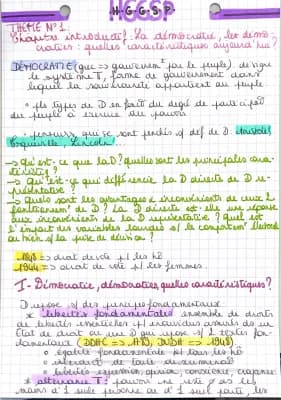 HGGSP
THEME N°1
Chapitre introductif : La démocratie, les démo-
craties : quelles caractéristiques aujourd'hui ?
DÉMOCRATIE (grec => gouvernement par le peuple) : désigne
le système T, forme de gouvernement dans
lequel la souveraineté appartient au peuple
° types de D en fait du degré de participat°
du peuple à exercice du pouvoir
° penseurs qui se sont penchés s/ déf de D : Aristote,
Tocqueville, Lincoln...
-> Qu'est-ce que la D ? quelles sont les principales cara-
téristiq ?
-> Qu'est-ce qui différencie la D directe de D re-
présentative ?
-> Quels sont les avantages & inconvénients de ces 2
fonctionnemt de D ? La D directe est-elle une réponse
aux inconvénients de la D représentative ? quel est
l'impact des variables lourdes s/ le comportemt électoral
ou bien s/ la prise de décision ?
1848 => droit de vote pr les hô
1944 => droit de vote pr les femmes.
I - Démocratie, démocraties, quelles caractéristiques ?
D repose s/ des principes fondamentaux
* libertés fondamentales : ensemble de droits
de libertés essentielles pr individus assurés ds un
État de droit ou une D qui repose s/ 2 textes fon-
damentaux (DDHC => 1789, DUDH => 1948)
° égalité fondamentale pr tous les hô
° interdict° de toute discriminat°
° libertés expression, opinion, conscience, croyance
* alternance T : pouvoir ne reste pas ds les
mains d'1 seule personne ou d'1 seul parti, les